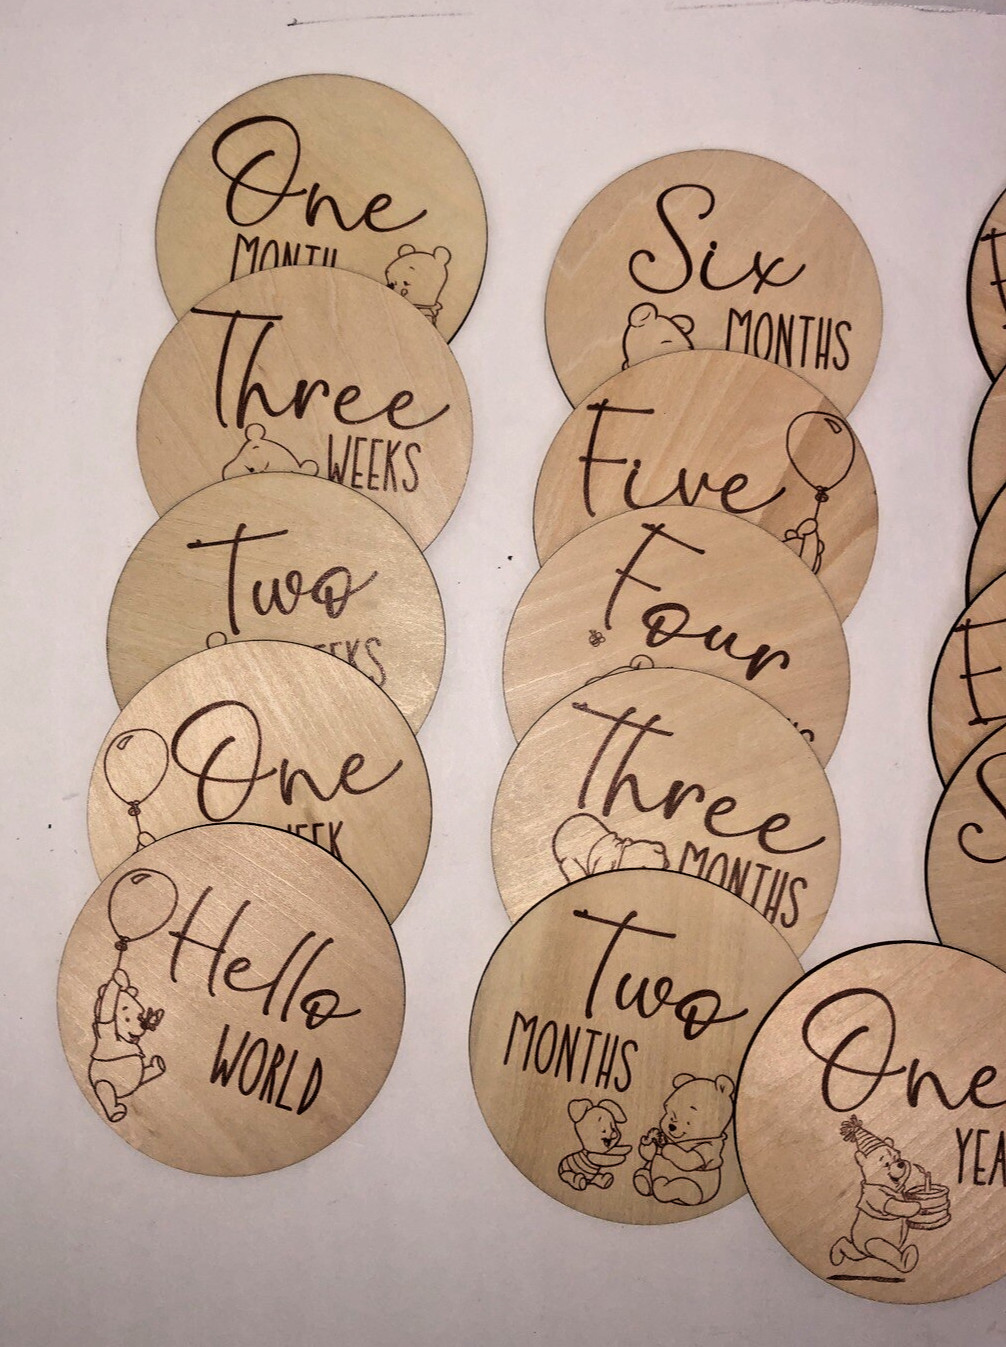 One
MONTH
Three
WEEKS
Two
WEEKS
One
WEEK
Hello
WORLD
Six
MONTHS
Five
Four
Three
MONTHS
Two
MONTHS
One
YEA